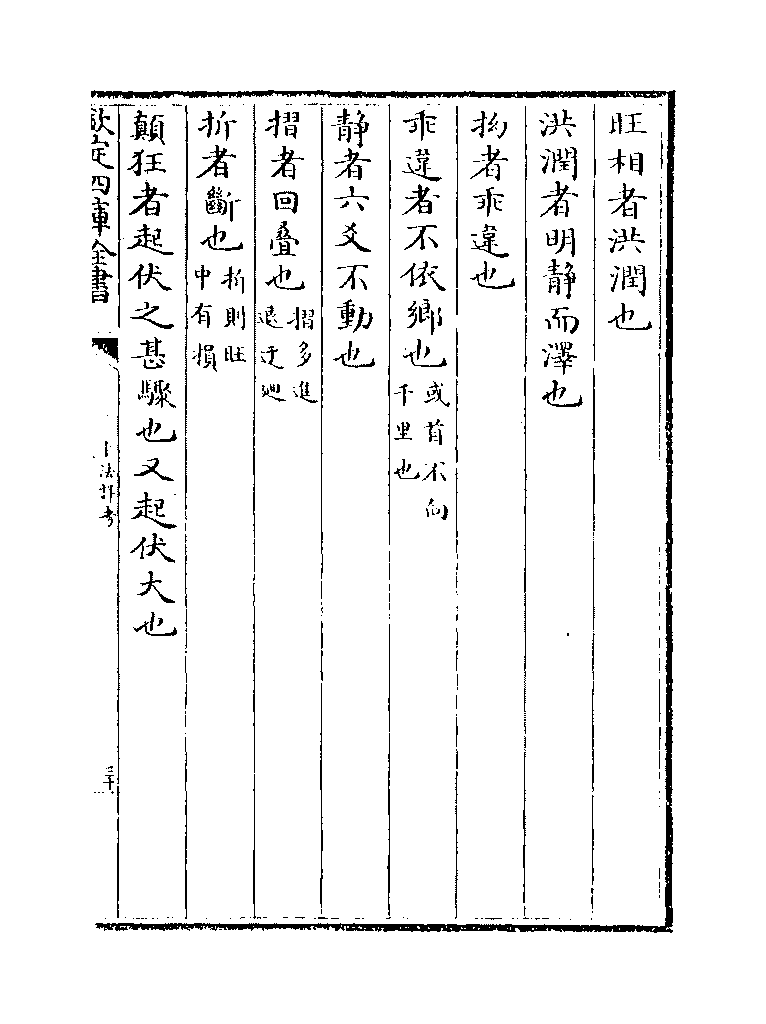 旺相者洪潤也
洪潤者明静而澤也
拗者乖違也
乖違者不依鄉也或首不向千里也
静者六爻不動也
摺者回疊也摺多進退迂廻
折者斷也折則旺中有損
顛狂者起伏之甚驟也又起伏大也
欽定四庫全書
卜法詳考
三十